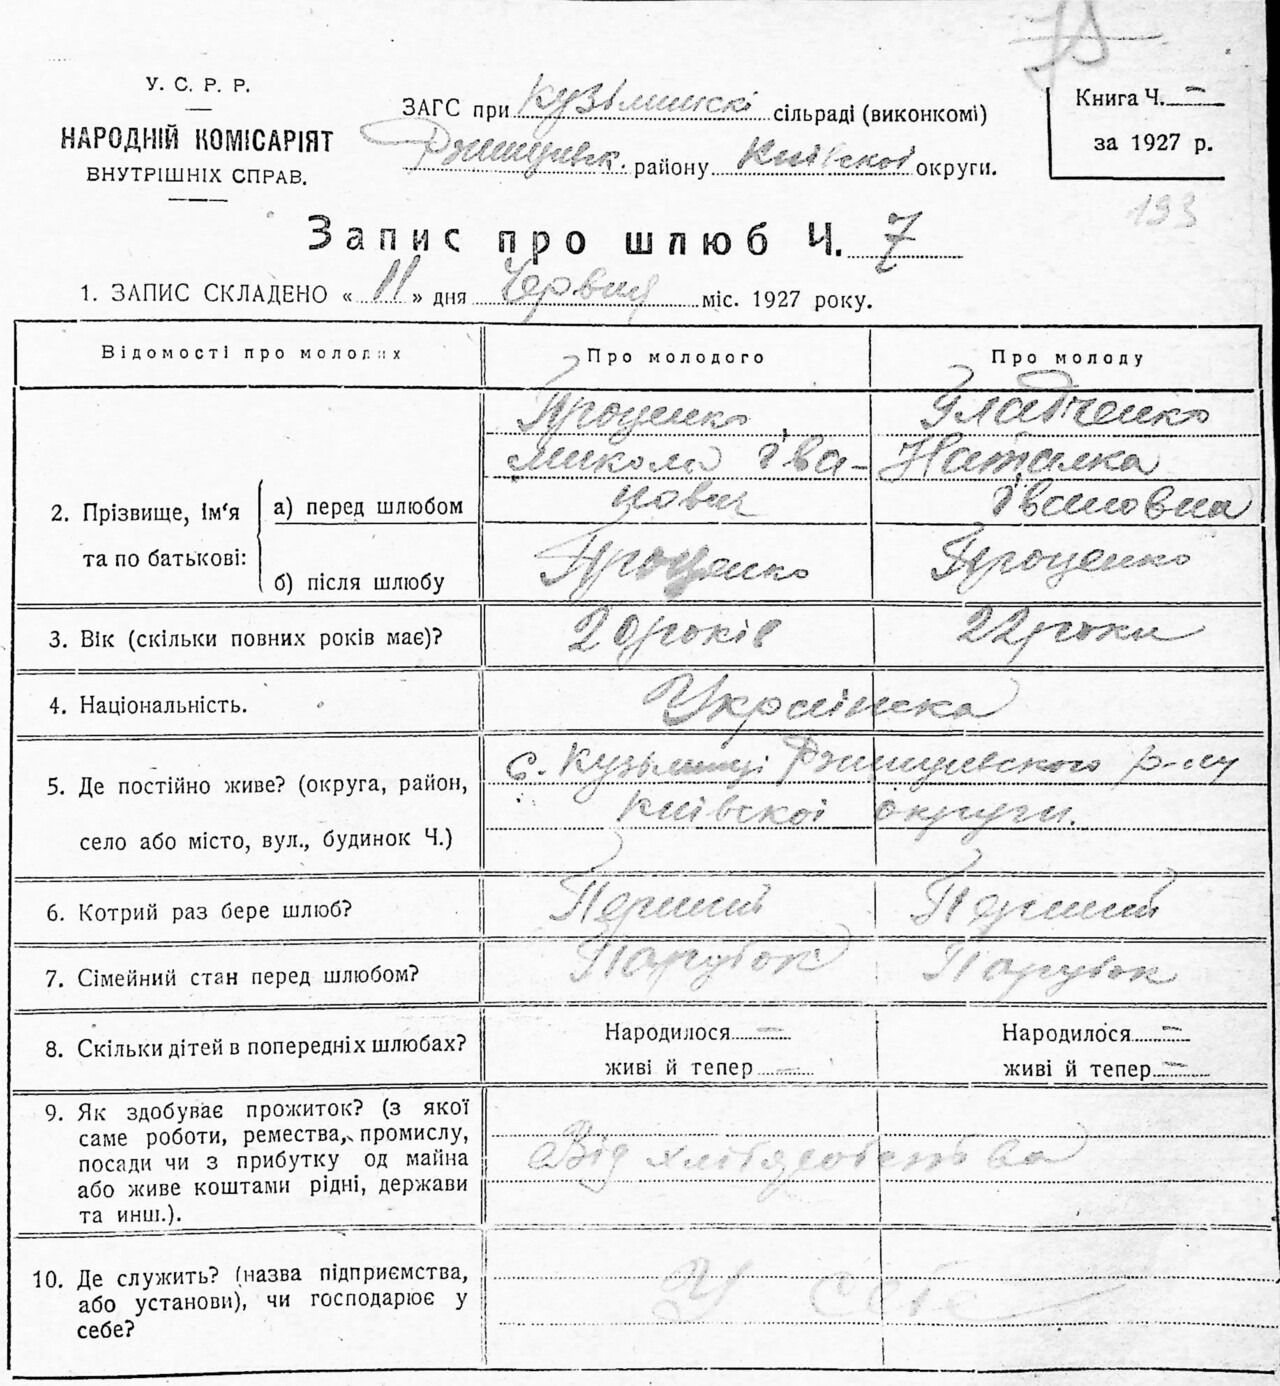 У. С. Р. Р.
НАРОДНІЙ КОМІСАРІЯТ
ВНУТРІШНІХ СПРАВ.
ЗАГС при Кузьминскі сільраді (виконкомі)
Ржищевск. району Київскоі округи.
Книга Ч. —
за 1927 р.
193
Запис про шлюб Ч. 7
1. ЗАПИС СКЛАДЕНО « 11 » дня Червня міс. 1927 року.
Відомості про молодих
Про молодого
Про молоду
2. Прізвище, ім‘я та по батькові:
а) перед шлюбом
Проценко
Микола Іва-
нович
Гладченко
Наталка
Івановна
б) після шлюбу
Проценко
Проценко
3. Вік (скільки повних років має)?
20 років
22 роки
4. Національність.
Українска
5. Де постійно живе? (округа, район,
село або місто, вул., будинок Ч.)
с. Кузьминці Ржищевского р-ну
Київскоі округи.
6. Котрий раз бере шлюб?
Перший
Перший
7. Сімейний стан перед шлюбом?
Парубок
Парубок
8. Скільки дітей в попередніх шлюбах?
Народилося —
живі й тепер —
Народилося —
живі й тепер —
9. Як здобуває прожиток? (з якої
саме роботи, ремества, промислу,
посади чи з прибутку од майна
або живе коштами рідні, держави
та инш.).
Від хлібороботства
10. Де служить? (назва підприємства,
або установи), чи господарює у
себе?
У себе